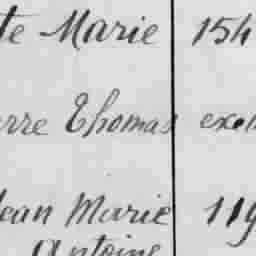 te Marie 154
erre Thomas exe
Jean Marie 119
Antoine